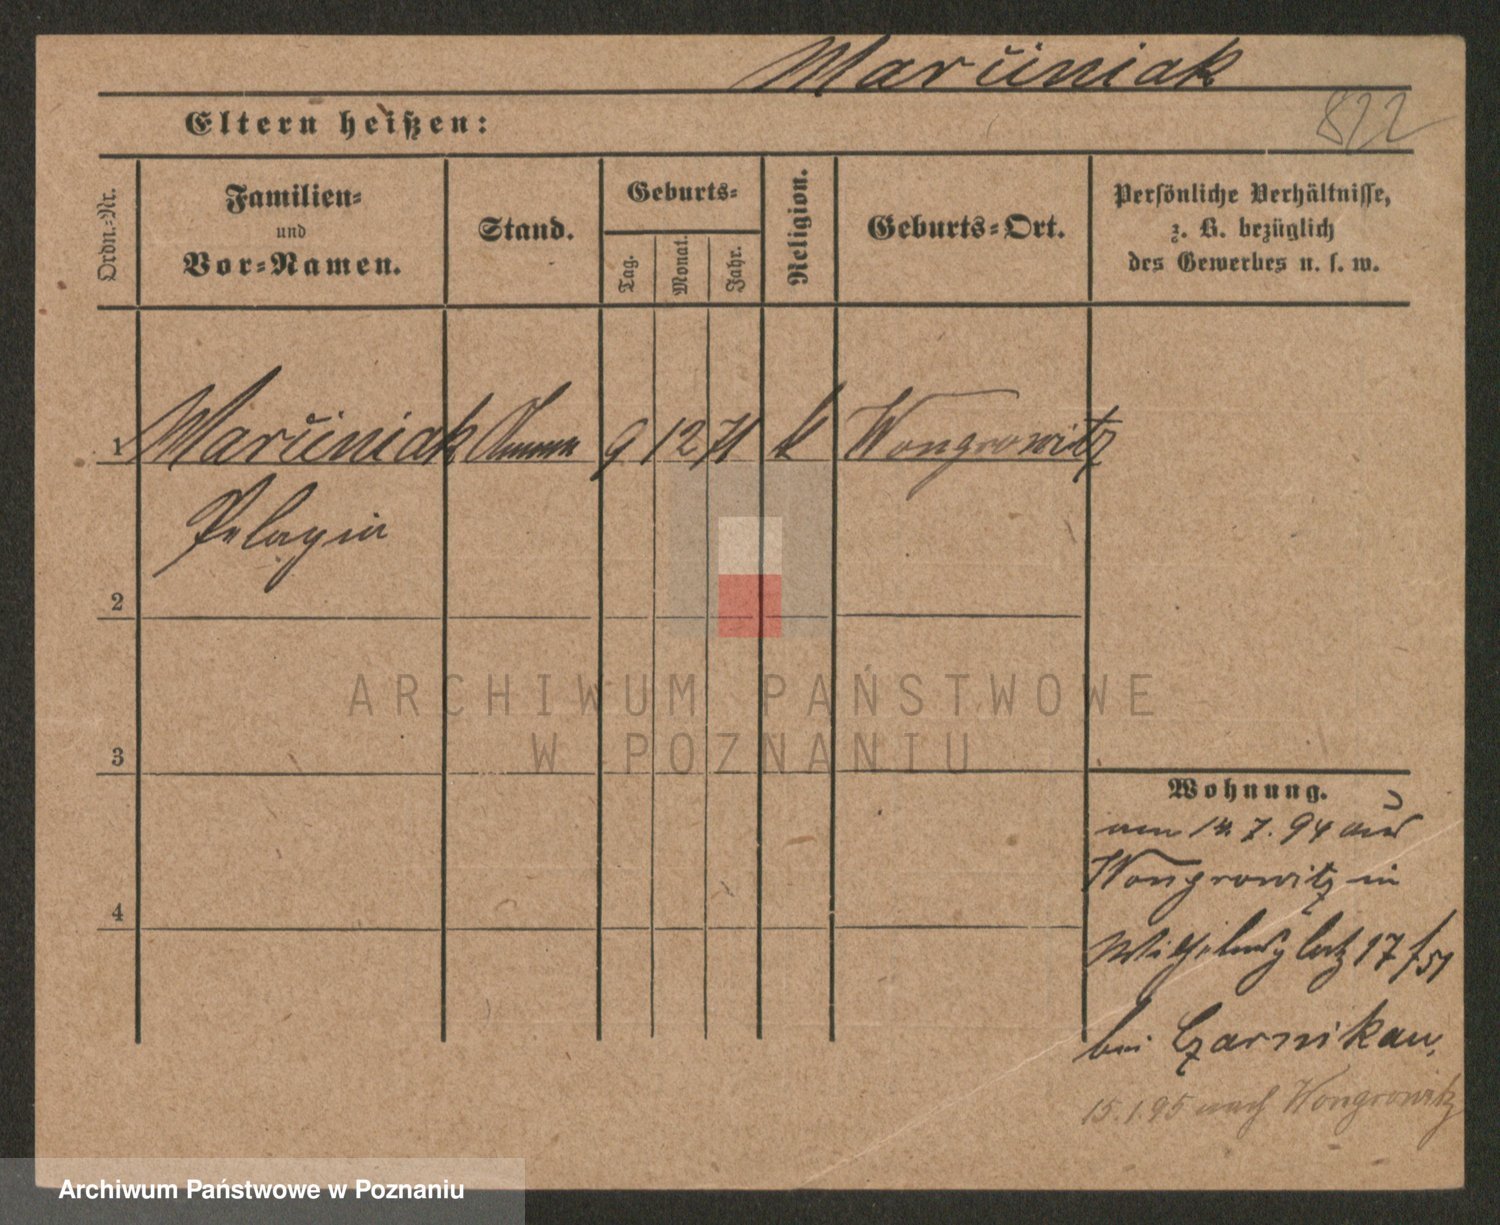 Maruniak
822
Eltern heißen:
Ordn.-Nr.
Familien-
und
Vor-Namen.
Stand.
Geburts-
Tag.
Monat.
Jahr.
Religion.
Geburts-Ort.
Persönliche Verhältnisse,
z. B. bezüglich
des Gewerbes u. s. w.
1 Maruniak Amme 9 12 71 k Wongrowitz
Pelagia
2
3
4
ARCHIWUM PAŃSTWOWE
W POZNANIU
Wohnung.
am 7. 94 aus
Wongrowitz in
Wilhelmsplatz 17
bei Czarnikau,
15.1.95 nach Wongrowitz
Archiwum Państwowe w Poznaniu